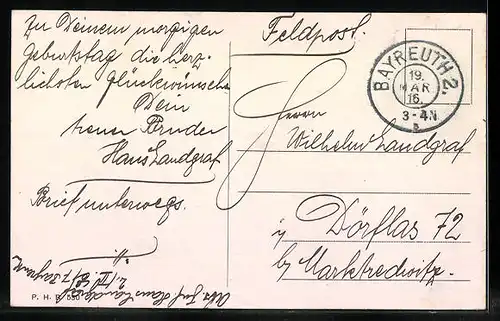 Zu Deinem morgigen
Geburtstag die herz-
lichsten Glückwünsche
Dein
treuer Bruder
Hans Landgraf
Brief unterwegs.
Feldpost.
BAYREUTH 2.
19.
MAR
16.
3-4N
Herrn
Wilhelm Landgraf
Dörflas 72
Marktredwitz.
Hans Landgraf
P. H. B. 550